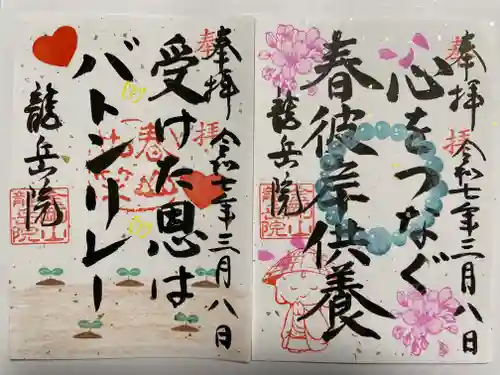 奉拝 令和七年三月八日
奉拝
受けた恩は
バトンリレー
龍岳院
奉拝 令和七年三月八日
奉拝
心をつなぐ
春彼岸供養
龍岳院